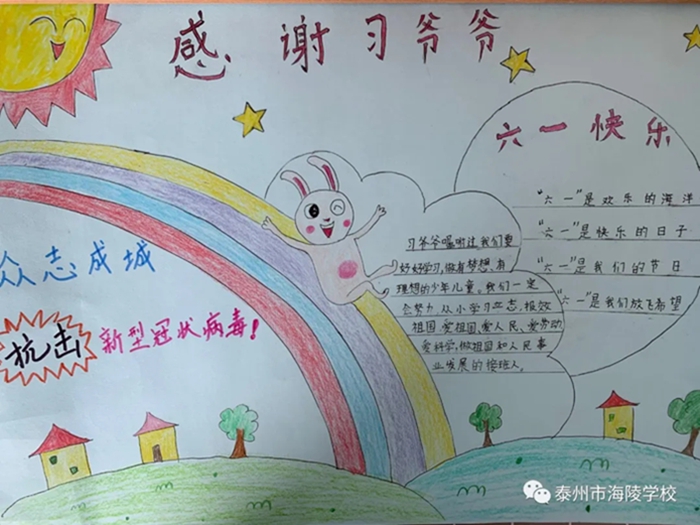 感谢习爷爷
六一快乐
"六一"是欢乐的海洋
"六一"是快乐的日子
"六一"是我们的节日
"六一"是我们放飞希望
习爷爷嘱咐过,我们要
好好学习,做有梦想,有
理想的少年儿童。我们一定
会努力从小学习立志,报效
祖国,爱祖国,爱人民,爱劳动
爱科学,做祖国和人民事
业发展的接班人。
众志成城
抗击
新型冠状病毒!
泰州市海陵学校